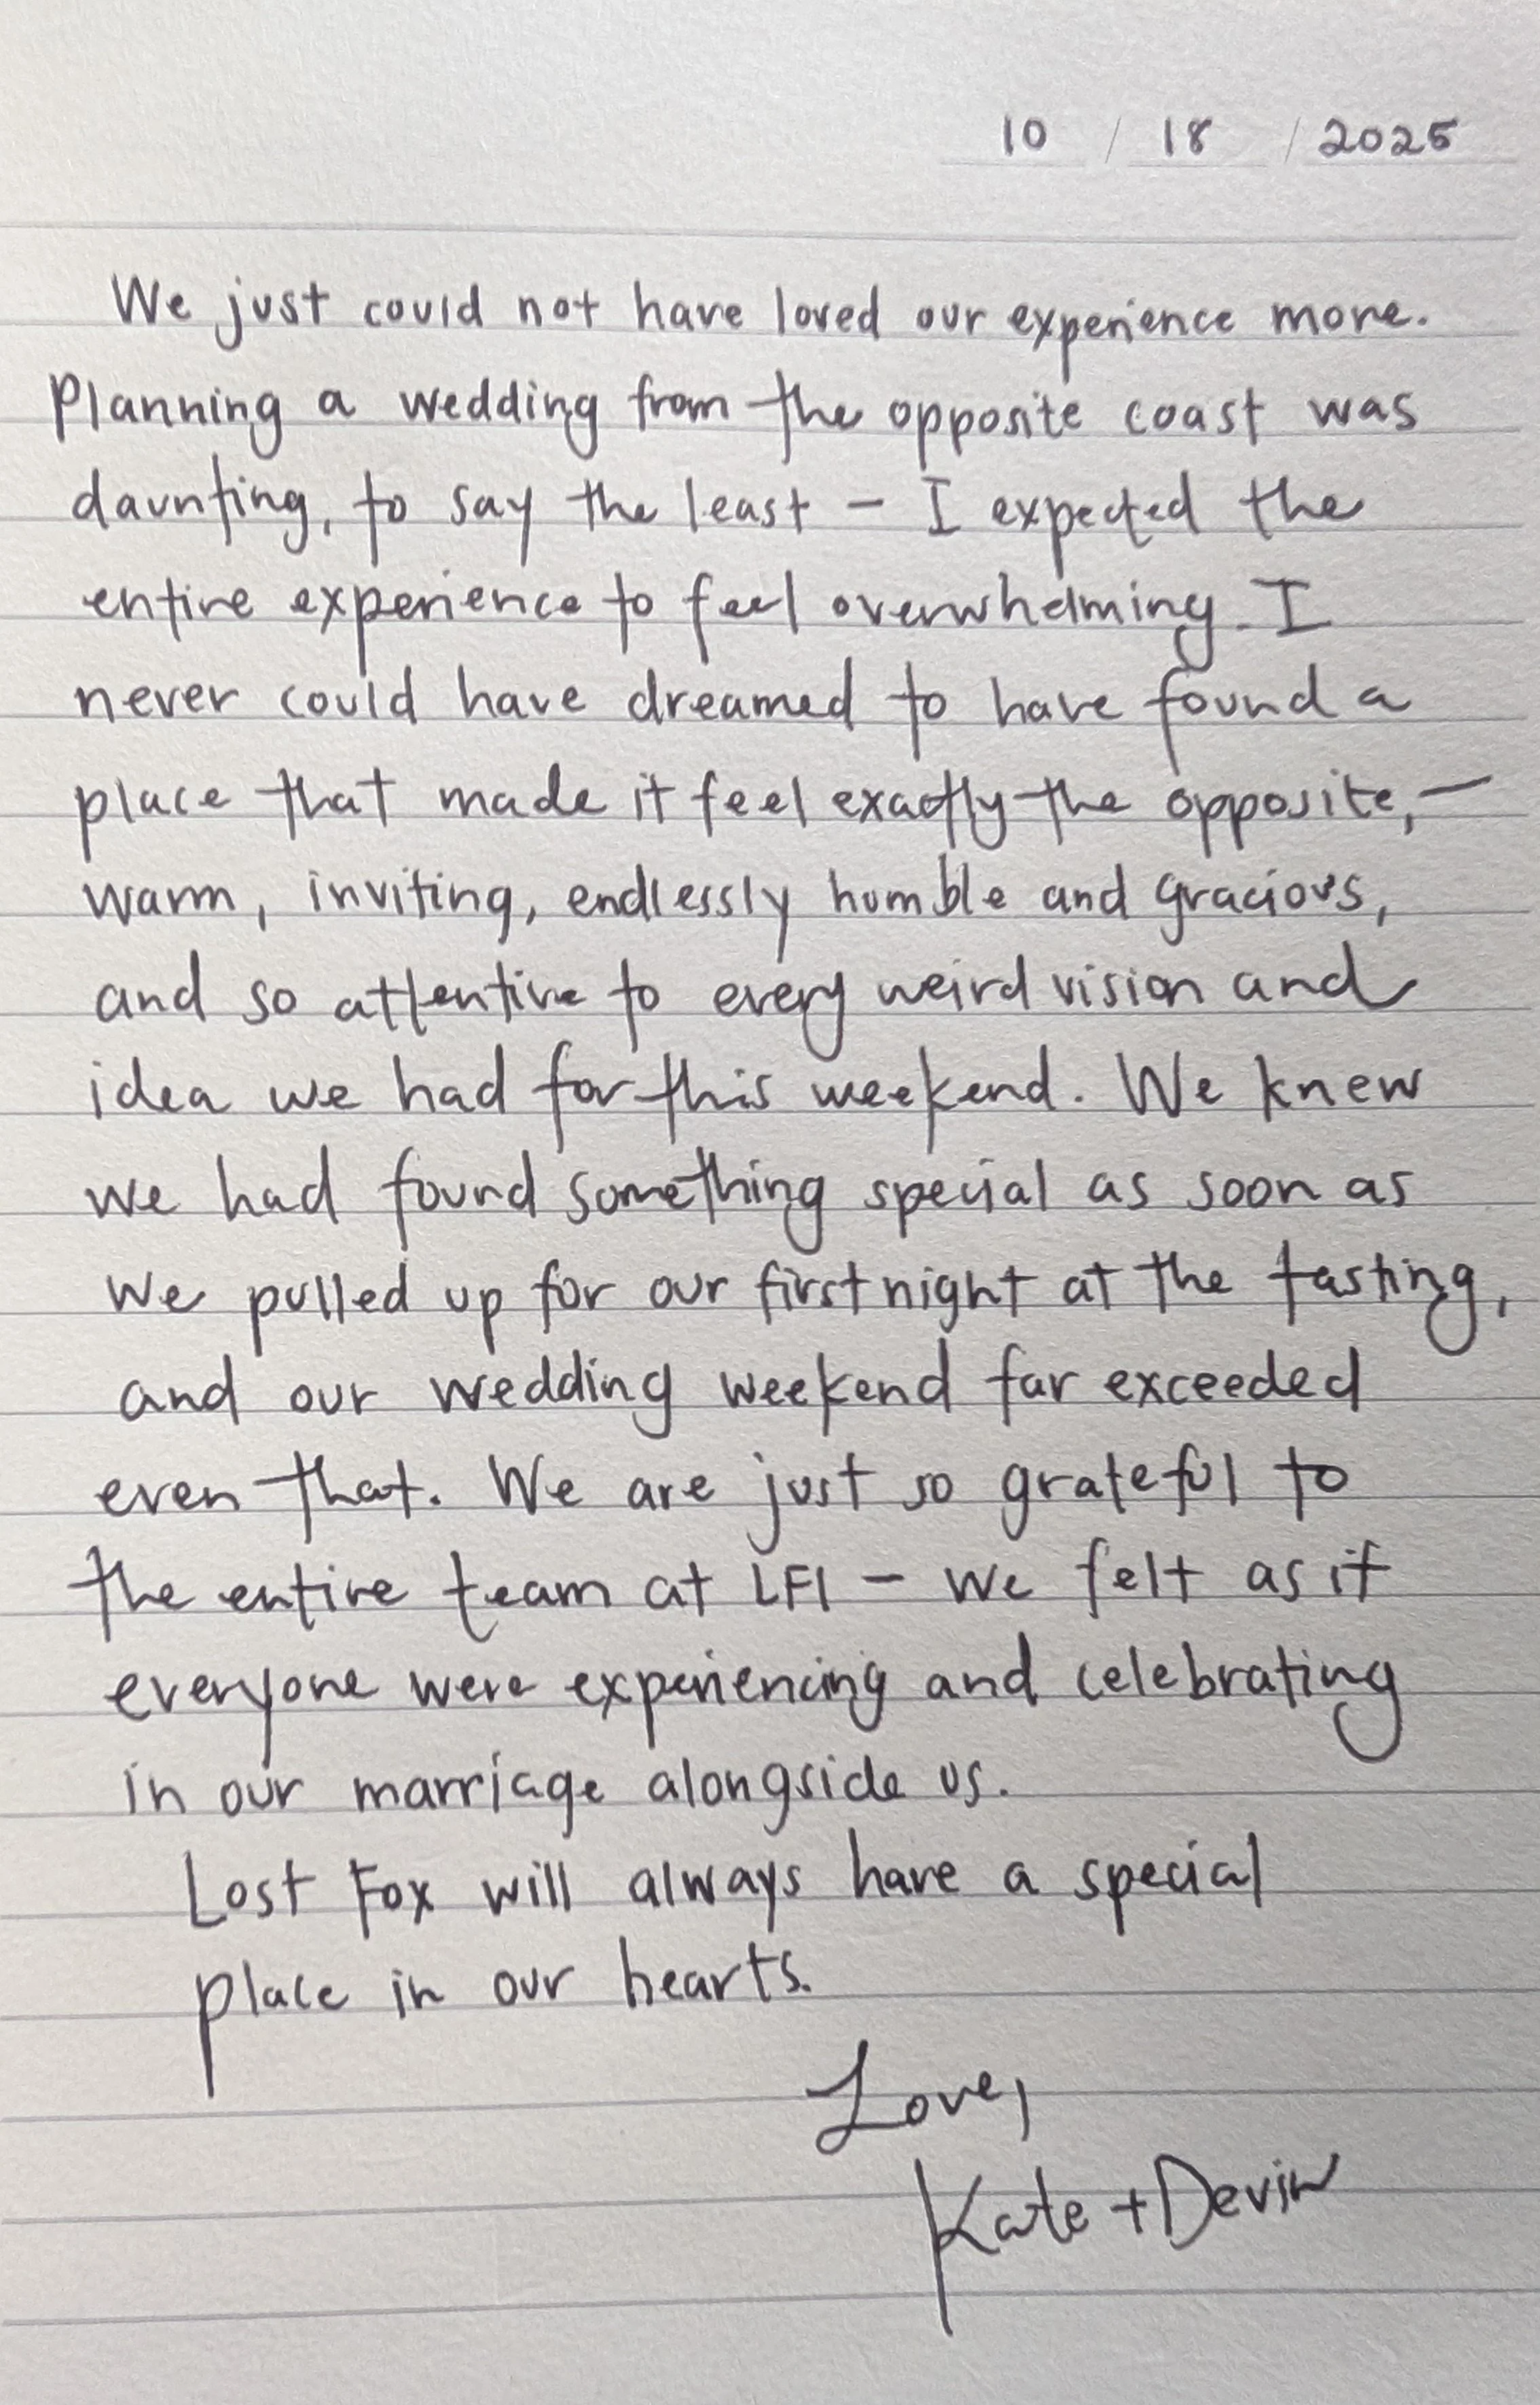 10 / 18 / 2025
We just could not have loved our experience more.
Planning a wedding from the opposite coast was
daunting, to say the least - I expected the
entire experience to feel overwhelming. I
never could have dreamed to have found a
place that made it feel exactly the opposite, -
warm, inviting, endlessly humble and gracious,
and so attentive to every weird vision and
idea we had for this weekend. We knew
we had found something special as soon as
we pulled up for our first night at the tasting,
and our wedding weekend far exceeded
even that. We are just so grateful to
the entire team at LFI - we felt as if
everyone were experiencing and celebrating
in our marriage alongside us.
Lost Fox will always have a special
place in our hearts.
Love,
Kate + Devin